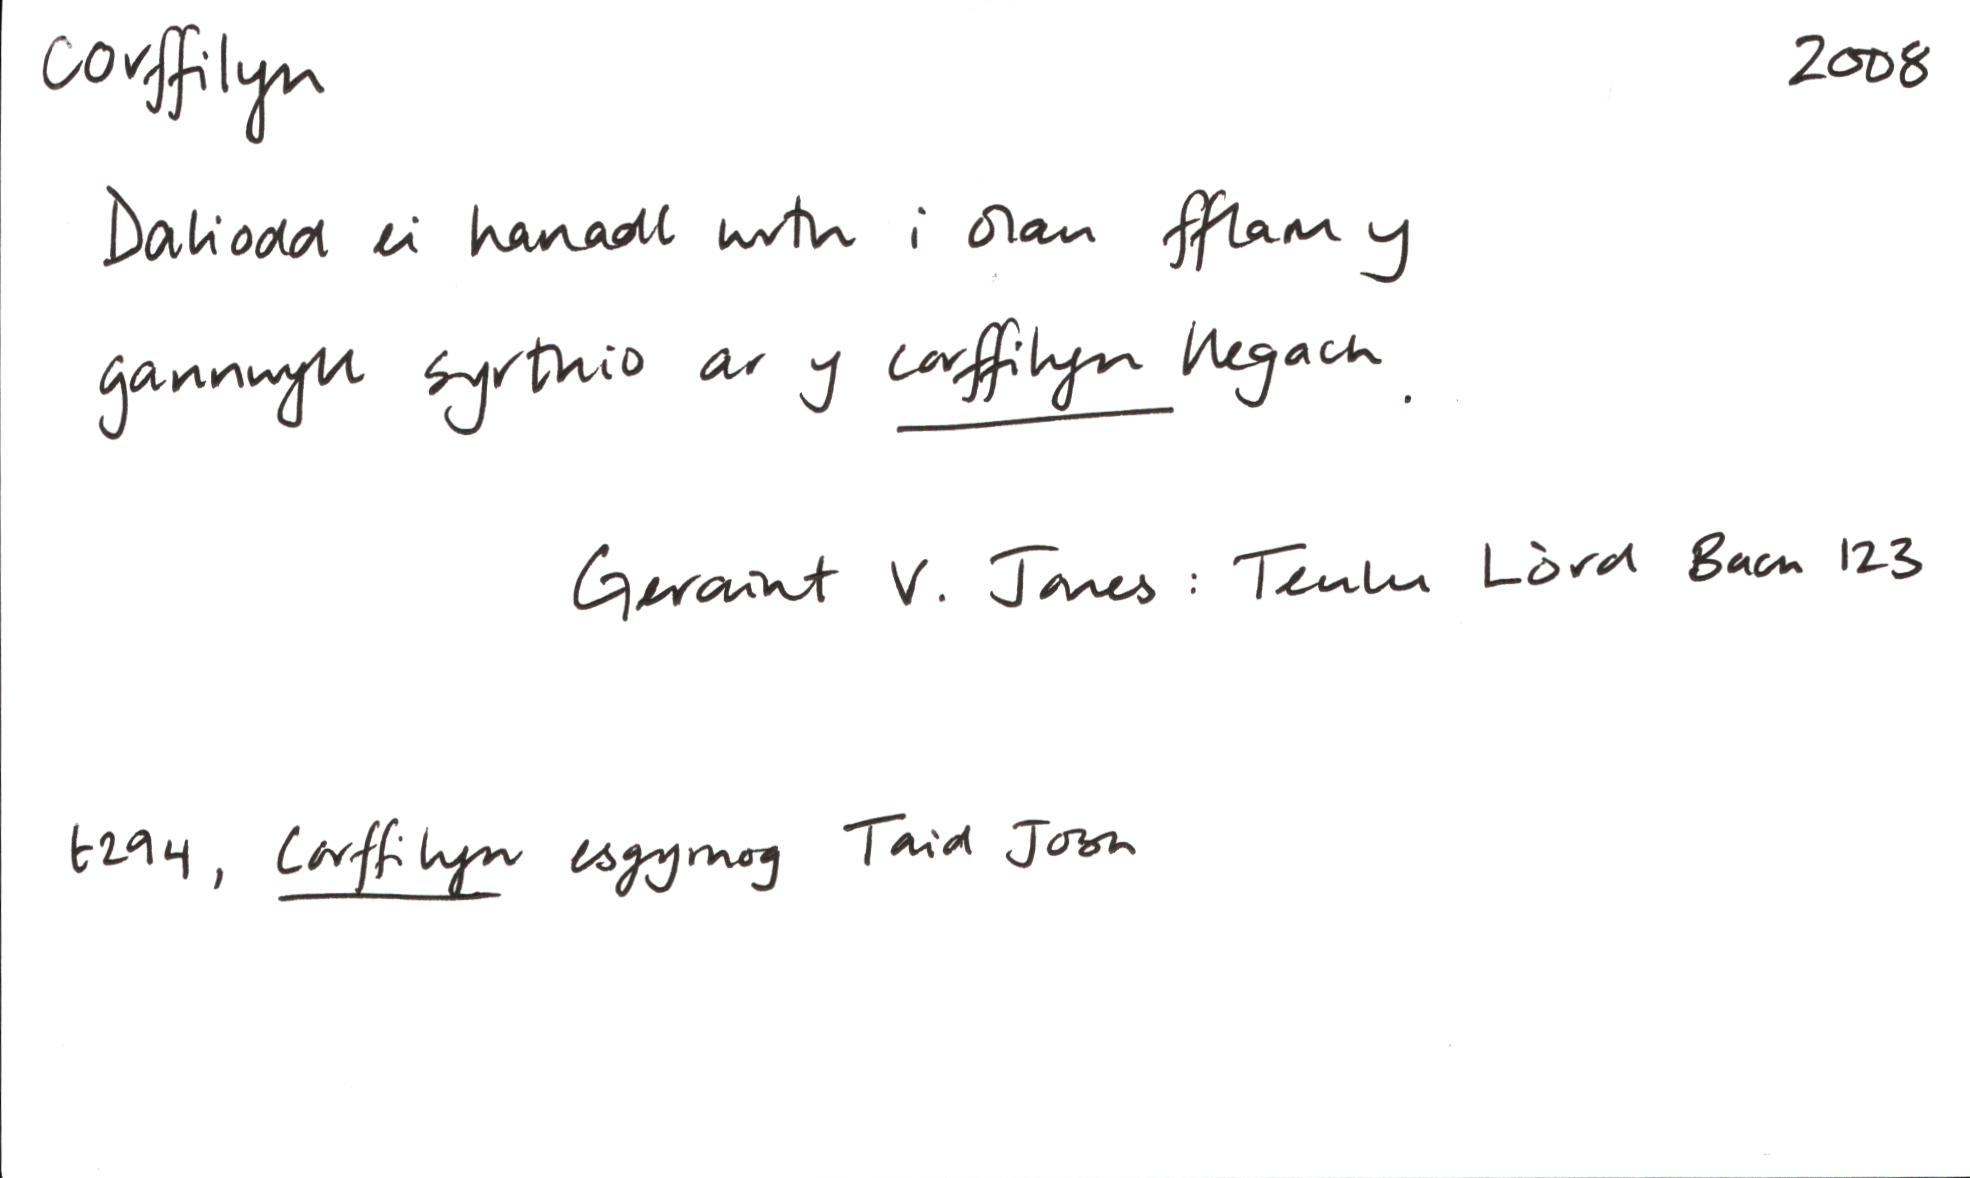 corffilyn 2008
Daliodd ei hanadl wrth i olau fflam y
gannwyll syrthio ar y corffilyn llegach.
Geraint V. Jones: Teulu Lòrd Bach 123
t294, Corffilyn esgyrnog Taid John